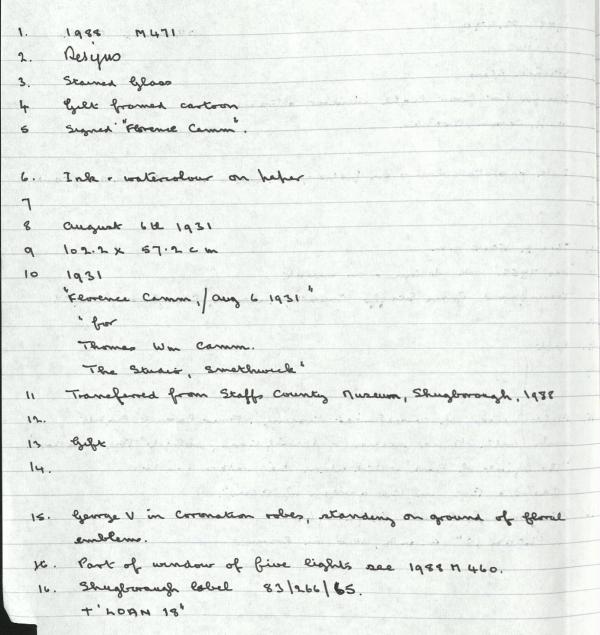 1. 1988 M471
2. Designs
3. Stained Glass
4 Gilt framed cartoon
5 Signed "Florence Camm".
6. Ink & watercolour on paper
7
8 August 6th 1931
9 102.2 x 57.2 cm
10 1931
"Florence Camm,/Aug 6 1931"
"for
Thomas Wm Camm.
The Studio, Smethwick"
11 Transferred from Staffs County Museum, Shugborough, 1988
12.
13 Gift
14.
15. George V in coronation robes, standing on ground of floral
emblems.
16. Part of window of five lights see 1988 M 460.
16. Shugborough label 83/266/65.
+ "LOAN 18"